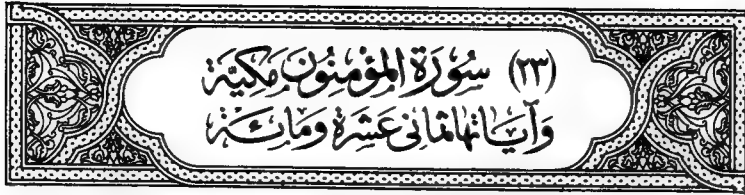 (٢٣) سُورَةُ المُؤْمِنُونَ مَكِيَّة
وَآيَاتُهَا ثَمَانِى عَشَرَة وَمَائَة